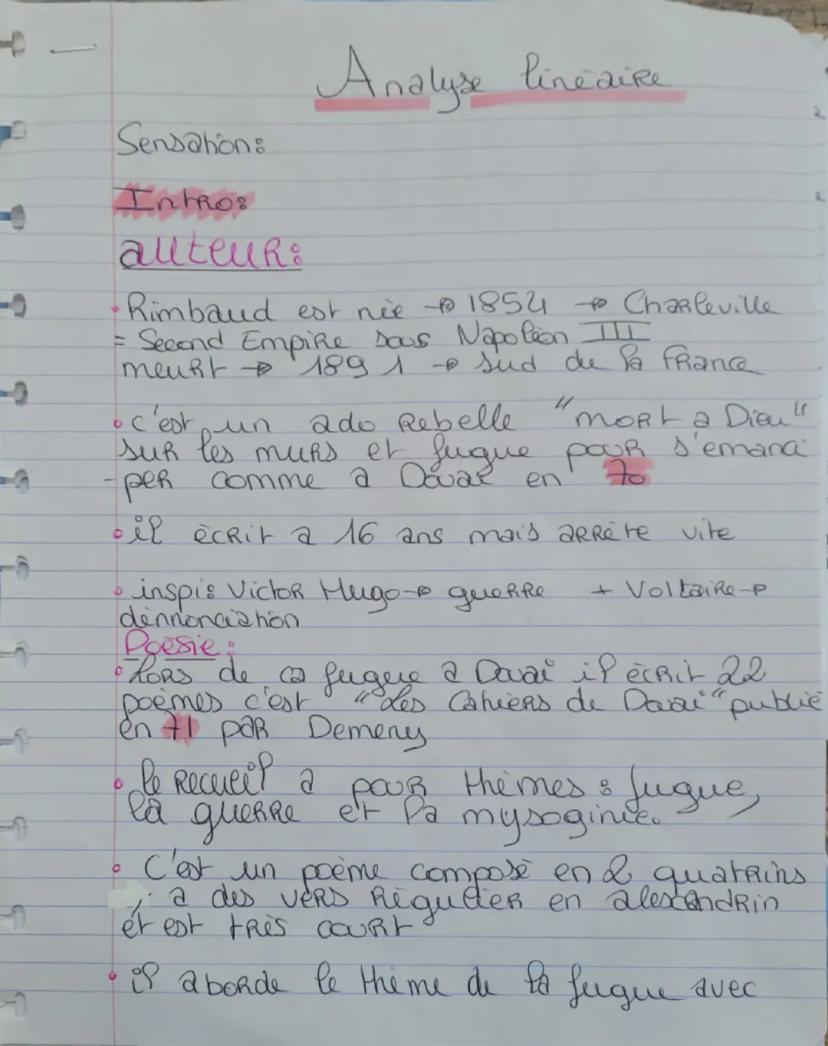 Analyse linéaire
Sensation:
Intro:
auteur:
• Rimbaud est née → 1854 → Charleville
= Second Empire sous Napoléon III
meurt → 1891 → sud de la France
• c'est un ado rebelle "mort a Dieu"
sur les murs et fugue pour s'emanci
-per comme a Douai en 70
• il écrit a 16 ans mais arrête vite
• inspi: Victor Hugo → guerre + Voltaire →
dénnonciation
Poésie:
• Lors de sa fugue a Douai il écrit 22
poèmes c'est "Les Cahiers de Douai" publié
en 71 par Demeny
• le recueil a pour thèmes: fugue,
la guerre et la mysoginie.
• C'est un poème composé en 2 quatrains
, a des vers régulier en alexandrin
et est très court
• il aborde le thème de la fugue avec